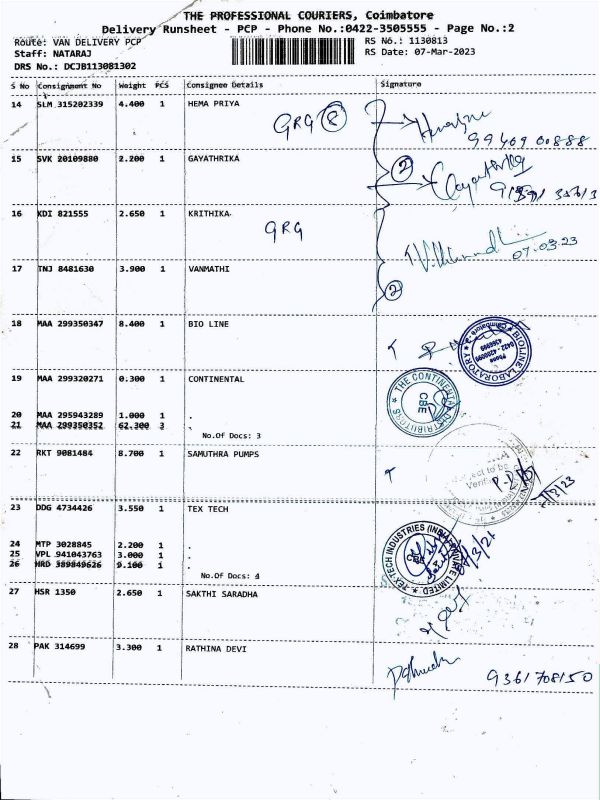 THE PROFESSIONAL COURIERS, Coimbatore
Delivery Runsheet - PCP - Phone No.:0422-3505555 - Page No.:2
Route: VAN DELIVERY PCP
RS No.: 1130813
Staff: NATARAJ
RS Date: 07-Mar-2023
DRS No.: DCJB113081302
S No Consignment No Weight PCS Consignee Details Signature
14 SLM 315202339 4.400 1 HEMA PRIYA
GRG 8
99409 00888
15 SVK 20109880 2.200 1 GAYATHRIKA
2
Gayathrika
16 KDI 821555 2.650 1 KRITHIKA
GRG
07.03.23
17 TNJ 8481630 3.900 1 VANMATHI
2
18 MAA 299350347 8.400 1 BIO LINE
BIOLINE LABORATORY
Coimbatore
Phone
0422 -
19 MAA 299320271 0.300 1 CONTINENTAL
THE CONTINENTAL DISTRIBUTORS
CBE
20 MAA 295943289 1.000 1 .
21 MAA 299350352 62.300 3 .
No.Of Docs: 3
22 RKT 9081484 8.700 1 SAMUTHRA PUMPS
Subject to be
23 DDG 4734426 3.550 1 TEX TECH
TEX TECH INDUSTRIES (INDIA) PRIVATE LIMITED
24 MTP 3028845 2.200 1 .
25 VPL 941043763 3.000 1 .
26 HRD 389849626 9.100 1 .
No.Of Docs: 4
27 HSR 1350 2.650 1 SAKTHI SARADHA
28 PAK 314699 3.300 1 RATHINA DEVI
9361708150